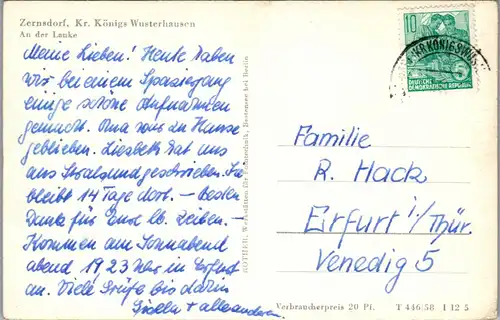 Zernsdorf, Kr. Königs Wusterhausen
An der Lanke
Meine Lieben! Heute haben
wir bei einem Spaziergang
einige schöne Aufnahmen
gemacht. Oma war zu Hause
geblieben. Liesbeth hat uns
aus Stralsund geschrieben. Sie
bleibt 14 Tage dort. – Besten
Dank für Eure lb. Zeilen. –
Kommen am Sonnabend
abend 19,23 Uhr in Erfurt
an. Viele Grüße bis dahin
Gisela + alle anderen
ROTHER, Werkstätten für Bestensee bei Berlin
10
5
DEUTSCHE
DEMOKRATISCHE REPUBLIK
KR. KÖNIGS WUST
Familie
R. Hack
Erfurt i./Thür.
Venedig 5
Verbraucherpreis 20 Pf. T 446/58 I 12 5